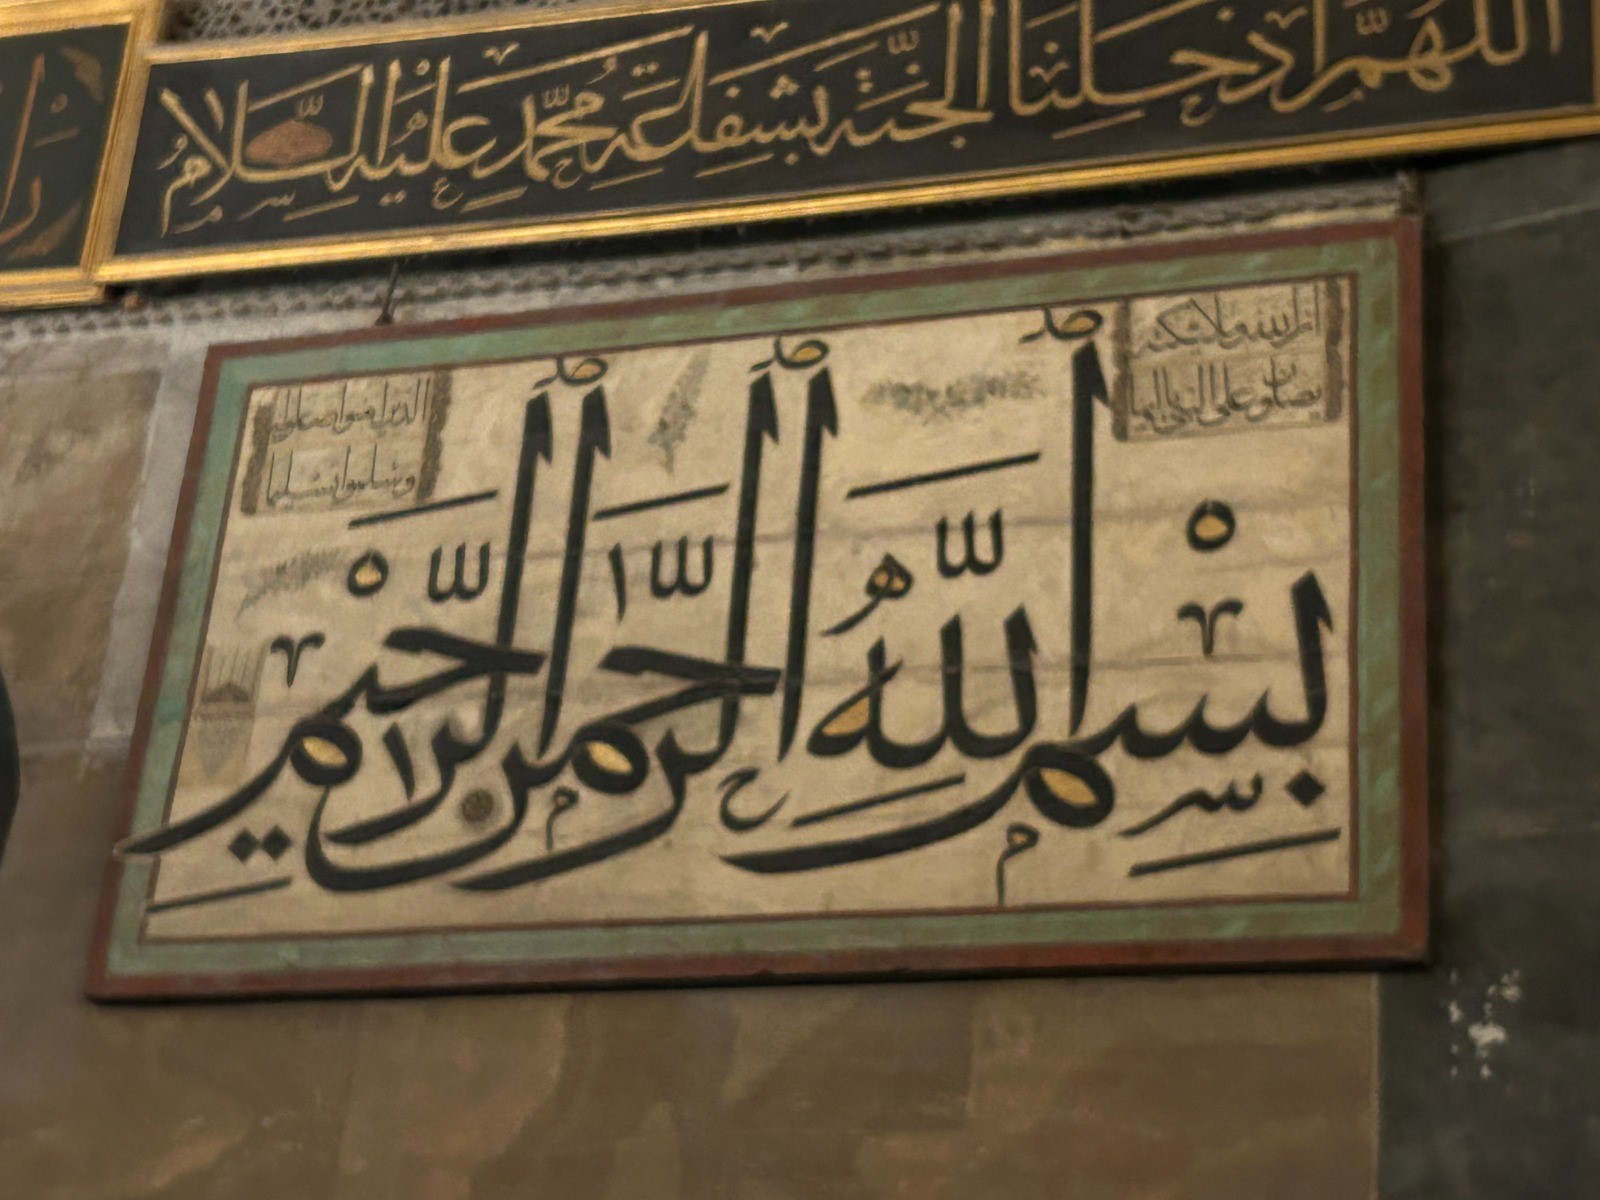 اللهم ادخلنا الجنة بشفاعة محمد عليه السلام
بِسْمِ اللهِ الرَّحْمنِ الرَّحِيمِ
ان الله وملائكته
يصلون على النبي يا ايها
الذين امنوا صلوا عليه
وسلموا تسليما